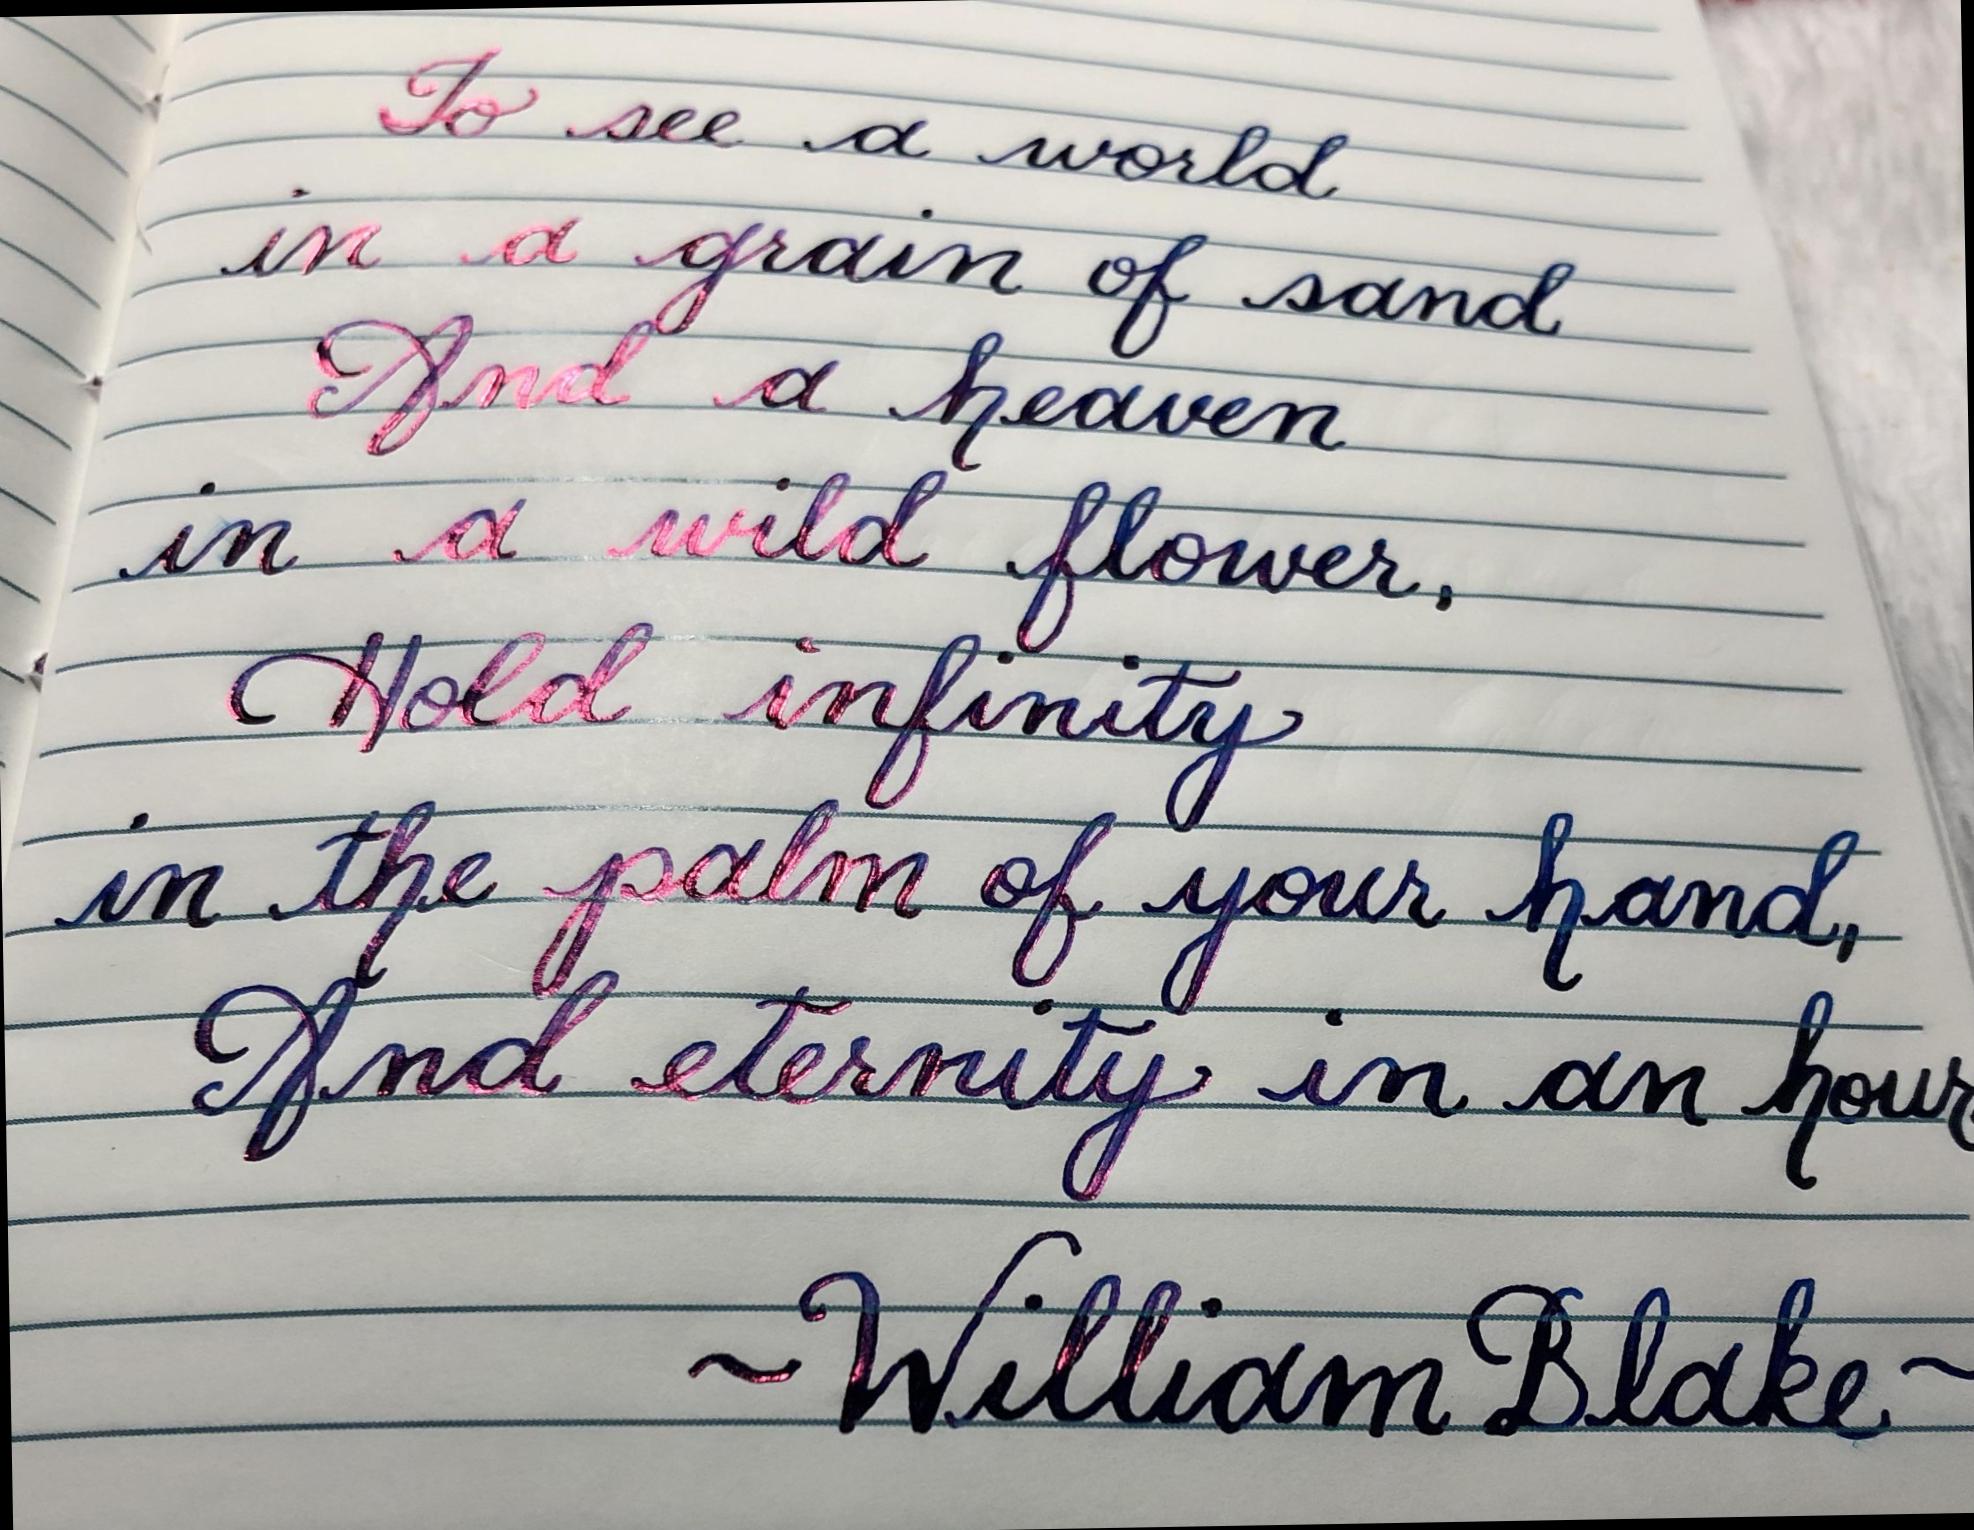 To see a world
in a grain of sand
And a heaven
in a wild flower,
Hold infinity
in the palm of your hand,
And eternity in an hour
~William Blake~